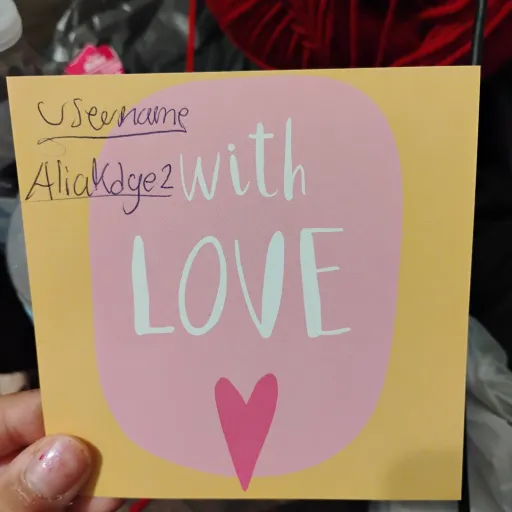 Username
AliaKdye2
with
LOVE